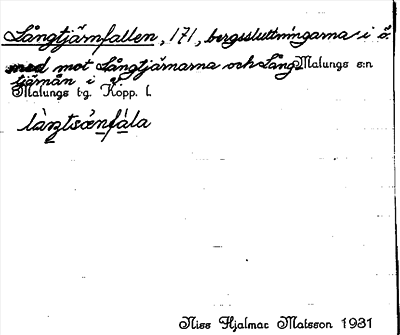 Långtjärnfallen, 171, bergssluttningarna i ö.
ned mot Långtjärnarna och Lång Malungs s:n
tjärnån i ö.
Malungs tg. Kopp. l.
Nils Hjalmar Matsson 1931